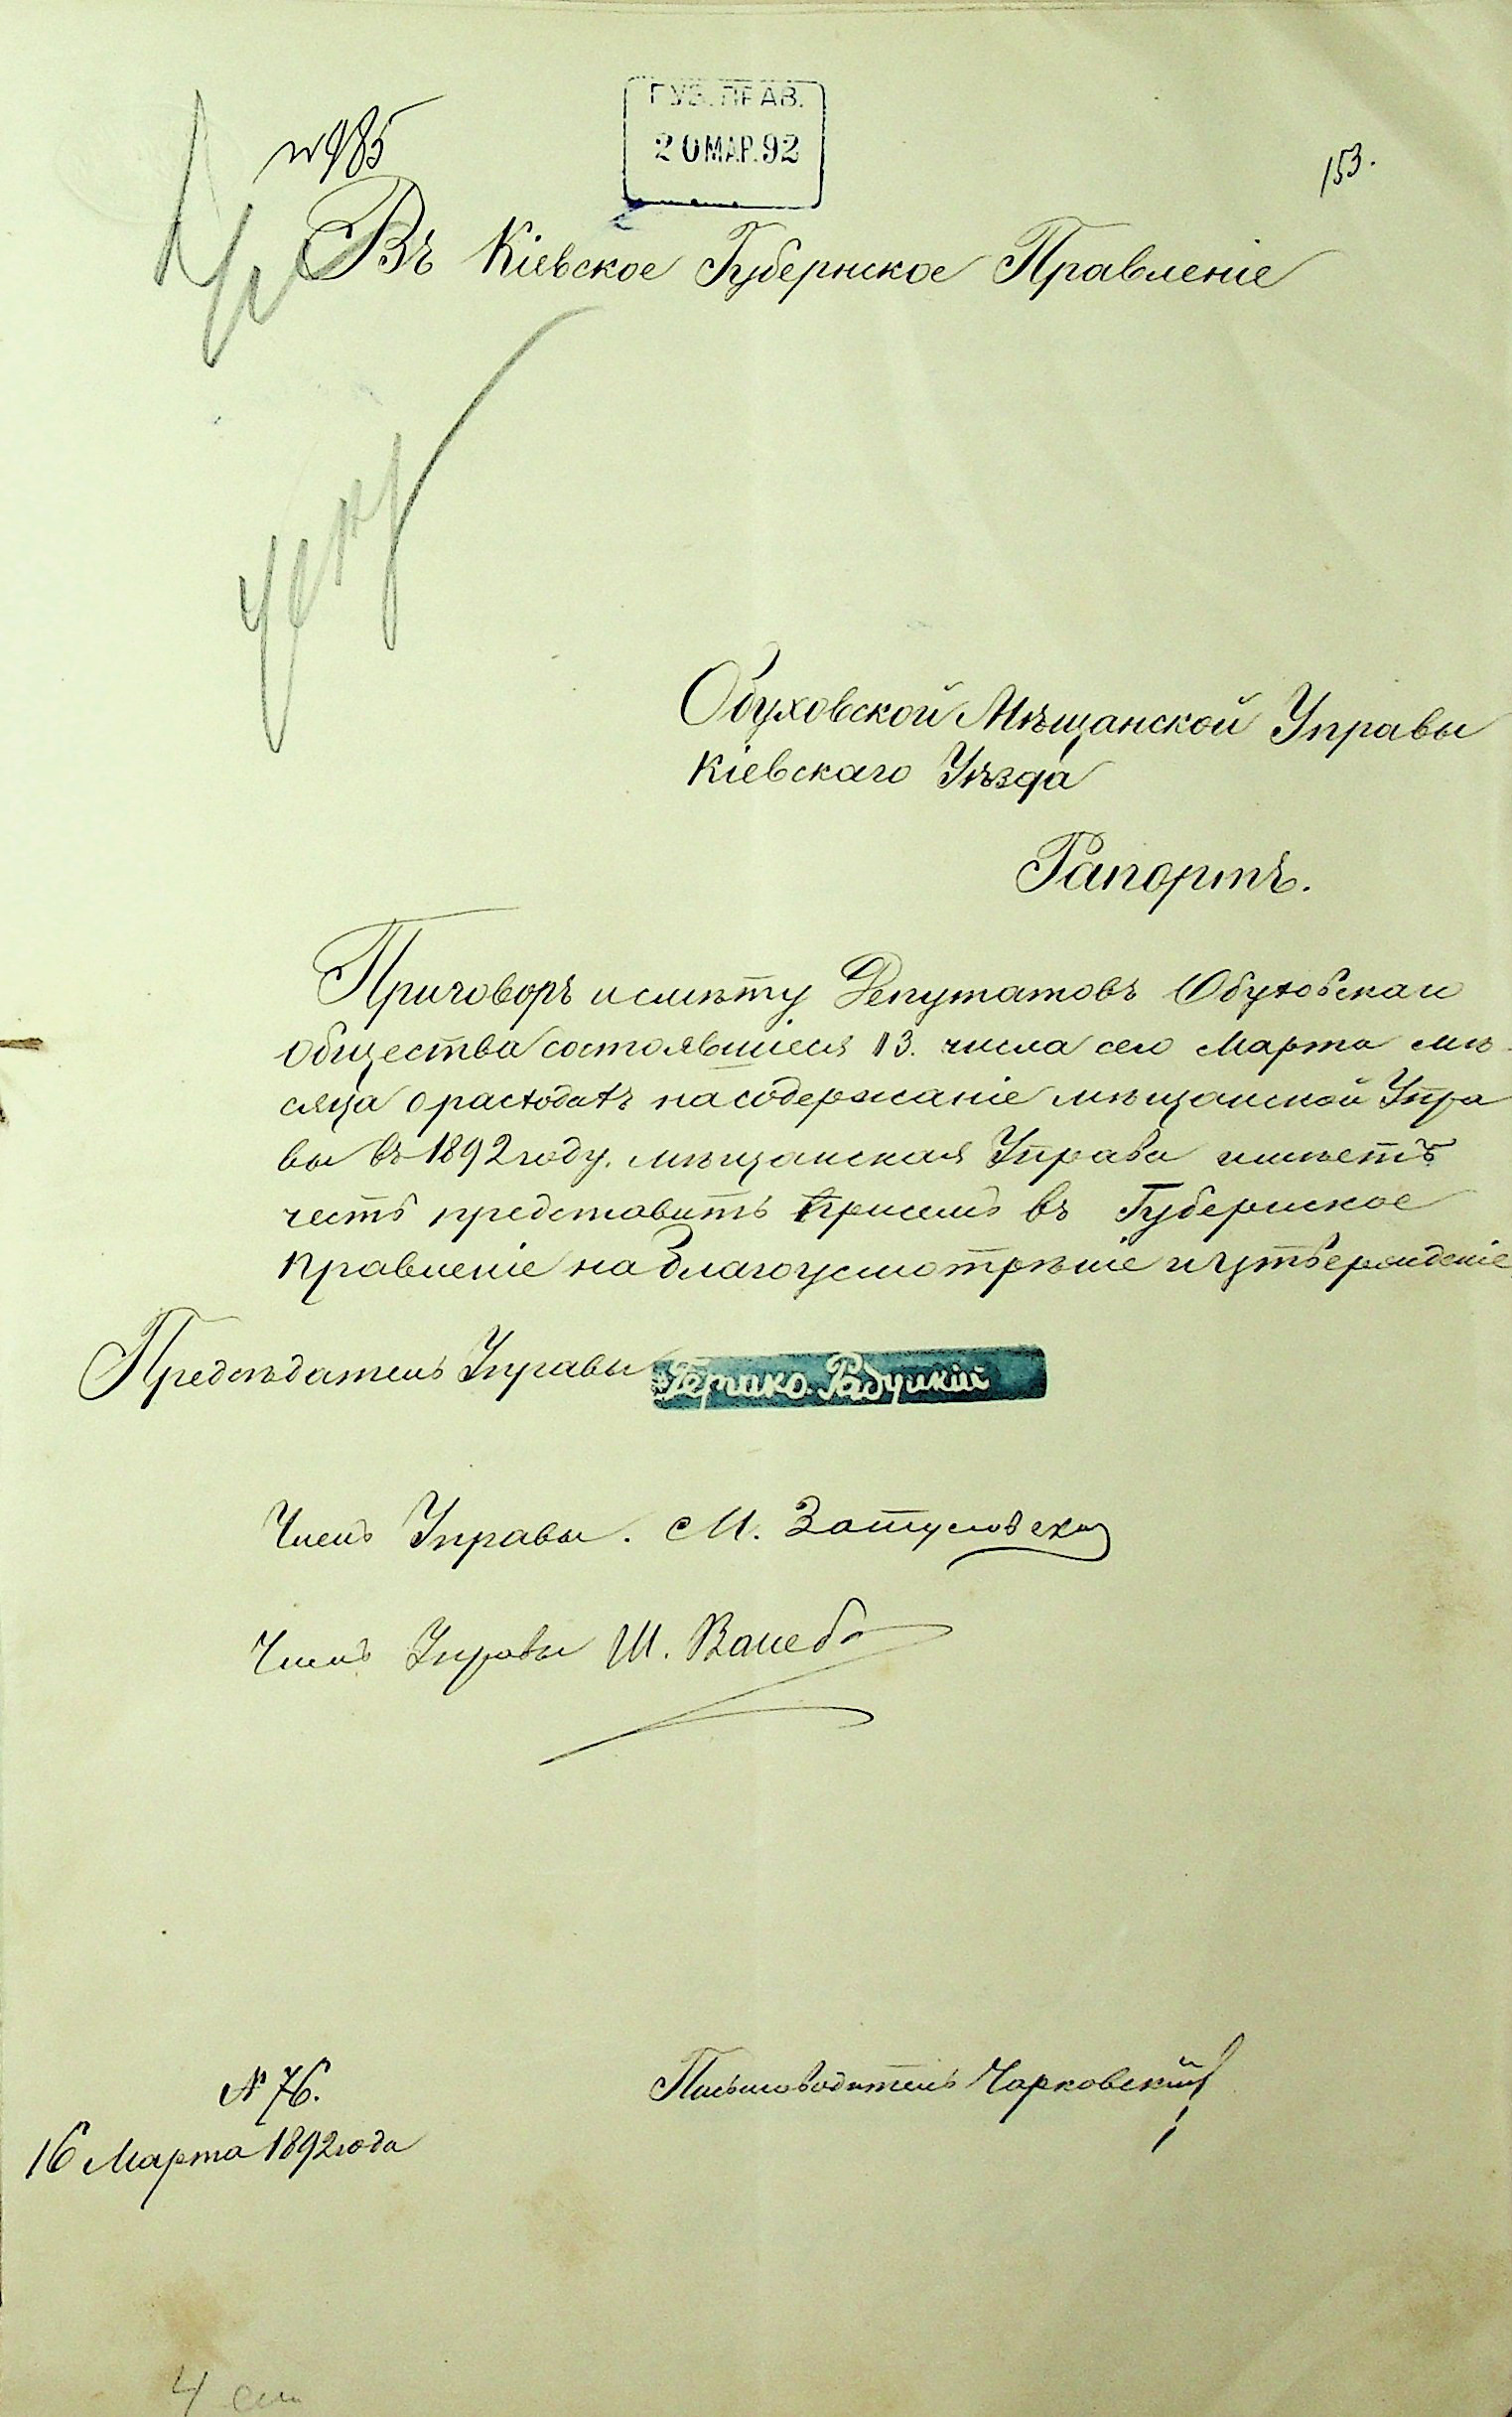 № 985
ГУБ. ПРАВ.
20 МАР. 92
153.
Въ Кіевское Губернское Правленіе
Обуховской Мѣщанской Управы
Кіевскаго Уѣзда
Рапортъ.
Приговоръ и смѣту Депутатовъ Обуховскаго
общества состоявшіеся 13. числа сего Марта мѣ-
сяца о расходахъ на содержаніе мѣщанской Упра
вы въ 1892 году. мѣщанская Управа имѣетъ
честь представить при семъ въ Губернское
Правленіе на благоусмотрѣніе и утвержденіе
Предсѣдатель Управы Радуцкій
Членъ Управы. М.
Членъ Управы Ш.
№ 76.
Письмоводитель Чарковскій
16 Марта 1892 года
4